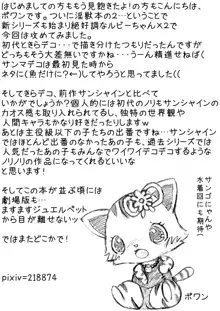 はじめましての方ももう見飽きたよ!の方もこんにちは、
ポワンです。ついに淫獣本の2…ということで
新シリーズも始まり絶好調なルビーちゃん×2で
今回は攻めてみました。
初代ときらデコ…で描き分けたつもりだったんですが
どっちももう大差無いですね…うーん精進せねば(
サンマデコは最初見た時から
ネタに(魚だけに?←)してやろうと思ってました((
そしてきらデコ、前作サンシャインと比べて
いかがでしょうか?個人的には初代のノリもサンシャインの
カオス感も取り入れられてるし、独特の世界観や
人間キャラもかなり好きだったりしますw
あとは主役級以下の子たちの出番ですね…サンシャイン
ではほとんど出番のなかったあの子も、過去シリーズでは
人気だったあの子もみんなでワイワイデコデコするような
ノリノリの作品になってくれるといいな
と思います!
そしてこの本が並ぶ頃には
劇場版も…
ますますジュエルペット
から目が離せないッく
ではまたどこかで!
サンゴにゃんや
水着回にも期待!
pixiv=218874
ポワン